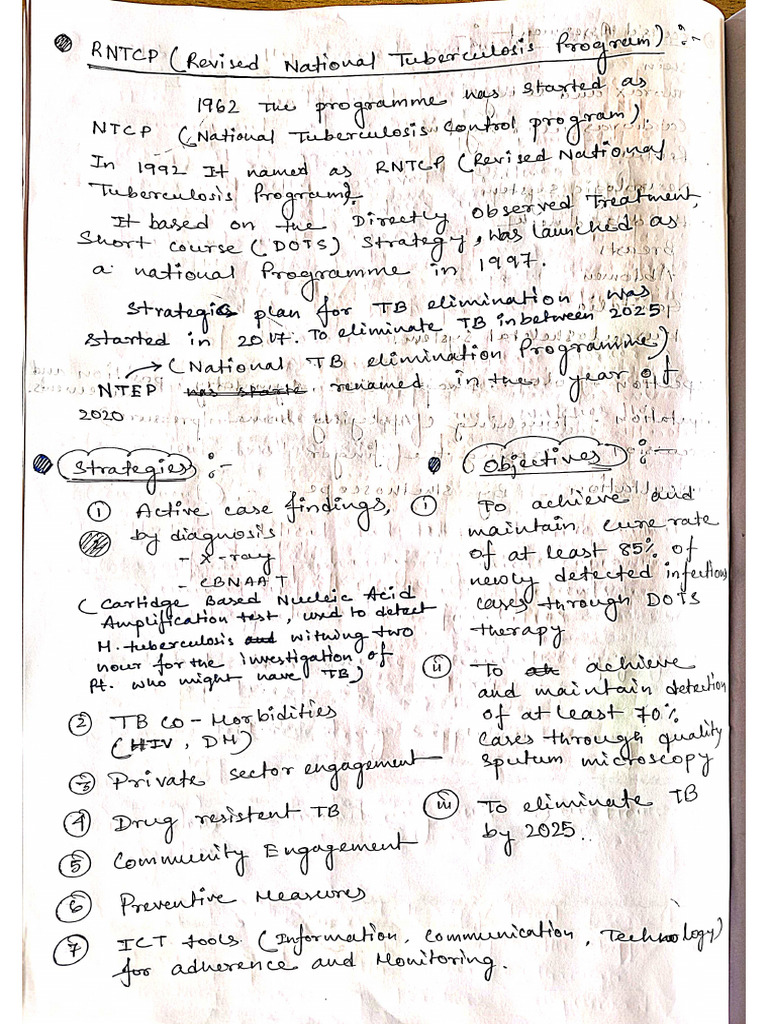 RNTCP (Revised National Tuberculosis Program) :-
1962 The programme was started as
NTCP (National Tuberculosis Control program).
In 1992 It named as RNTCP (Revised National
Tuberculosis Program).
It based on the Directly Observed Treatment,
Short course (DOTS) Strategy, was launched as
a national Programme in 1997.
Strategic plan for TB elimination was
started in 2017. To eliminate TB in between 2025
(National TB elimination Programme)
NTEP was starte renamed in the year of
2020
Strategies :-
① Active case findings,
by diagnosis
- X-ray
- CBNAAT
(Cartidge Based Nucleic Acid
Amplification test, used to detect
M. tuberculosis and withing two
hour for the investigation of
Pt. who might have TB)
② TB co-Morbidities
(HIV, DM)
③ Private sector engagement
④ Drug resistent TB
⑤ Community Engagement
⑥ Preventive Measures
⑦ ICT tools (Information, Communication, Technology)
for adherence and Monitoring.
Objectives :-
i To achieve and
maintain cure rate
of at least 85% of
newly detected infectious
cases through DOTS
therapy
ii To achieve
and maintain detection
of at least 70%
cases through quality
sputum microscopy
iii To eliminate TB
by 2025..